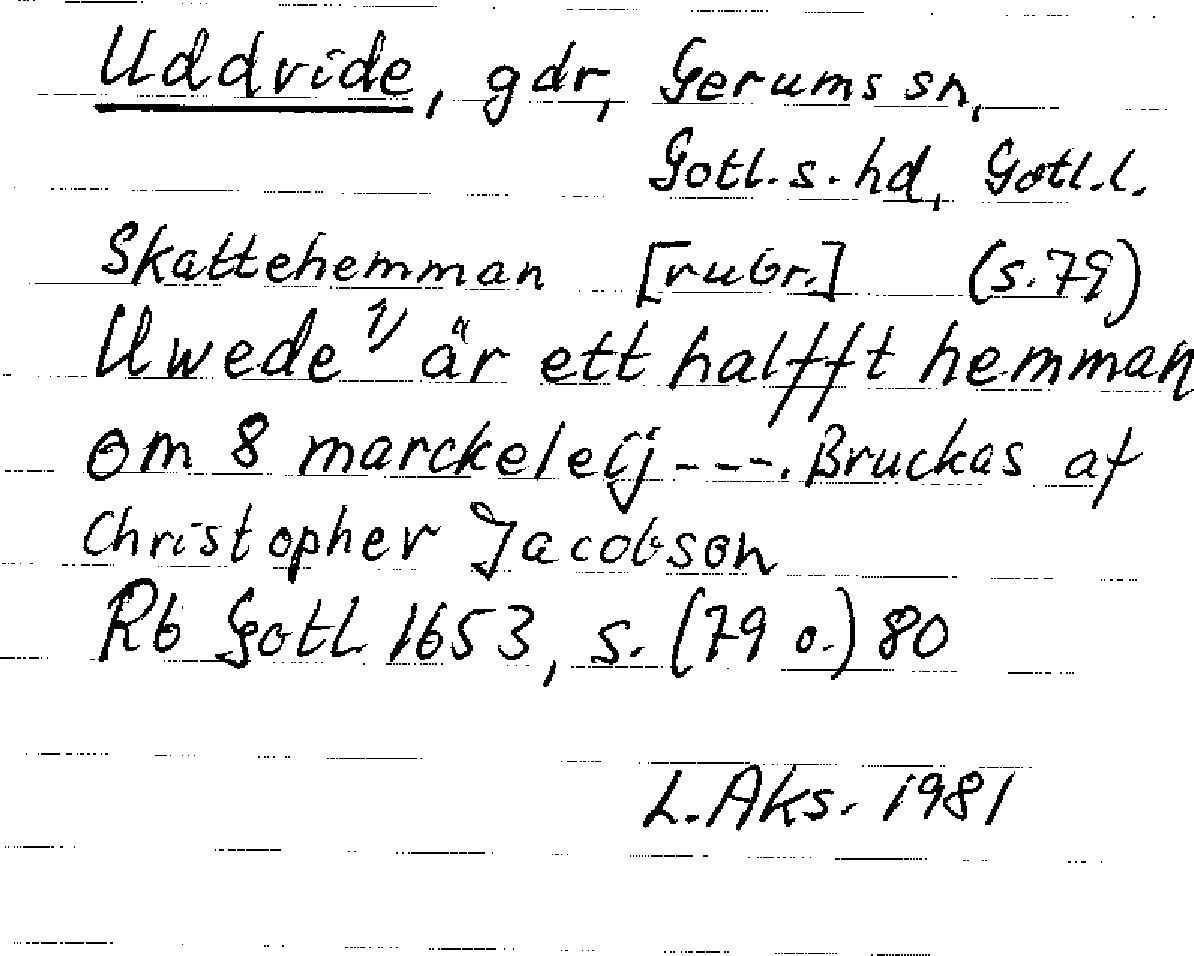 Uddvide, gdr, Gerums sn,
Gotl. s. hd, Gotl. l.
Skattehemman [rubr.] (s. 79)
Uwede 1/ är ett halfft hemman
om 8 marckeleij ---. Bruckas af
Christopher Jacobson
Rb Gotl 1653, s. (79 o.) 80
L. Aks. 1981